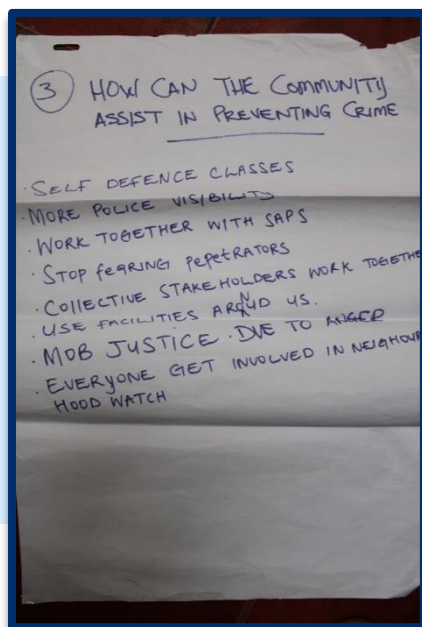 3 HOW CAN THE COMMUNITY
ASSIST IN PREVENTING CRIME
· SELF DEFENCE CLASSES
· MORE POLICE VISIBILITY
· WORK TOGETHER WITH SAPS
· STOP FEARING PEPETRATORS
· COLLECTIVE STAKEHOLDERS WORK TOGETHE
· USE FACILITIES AROUND US.
· MOB JUSTICE. DUE TO ANGER
· EVERYONE GET INVOLVED IN NEIGHOUR
HOOD WATCH